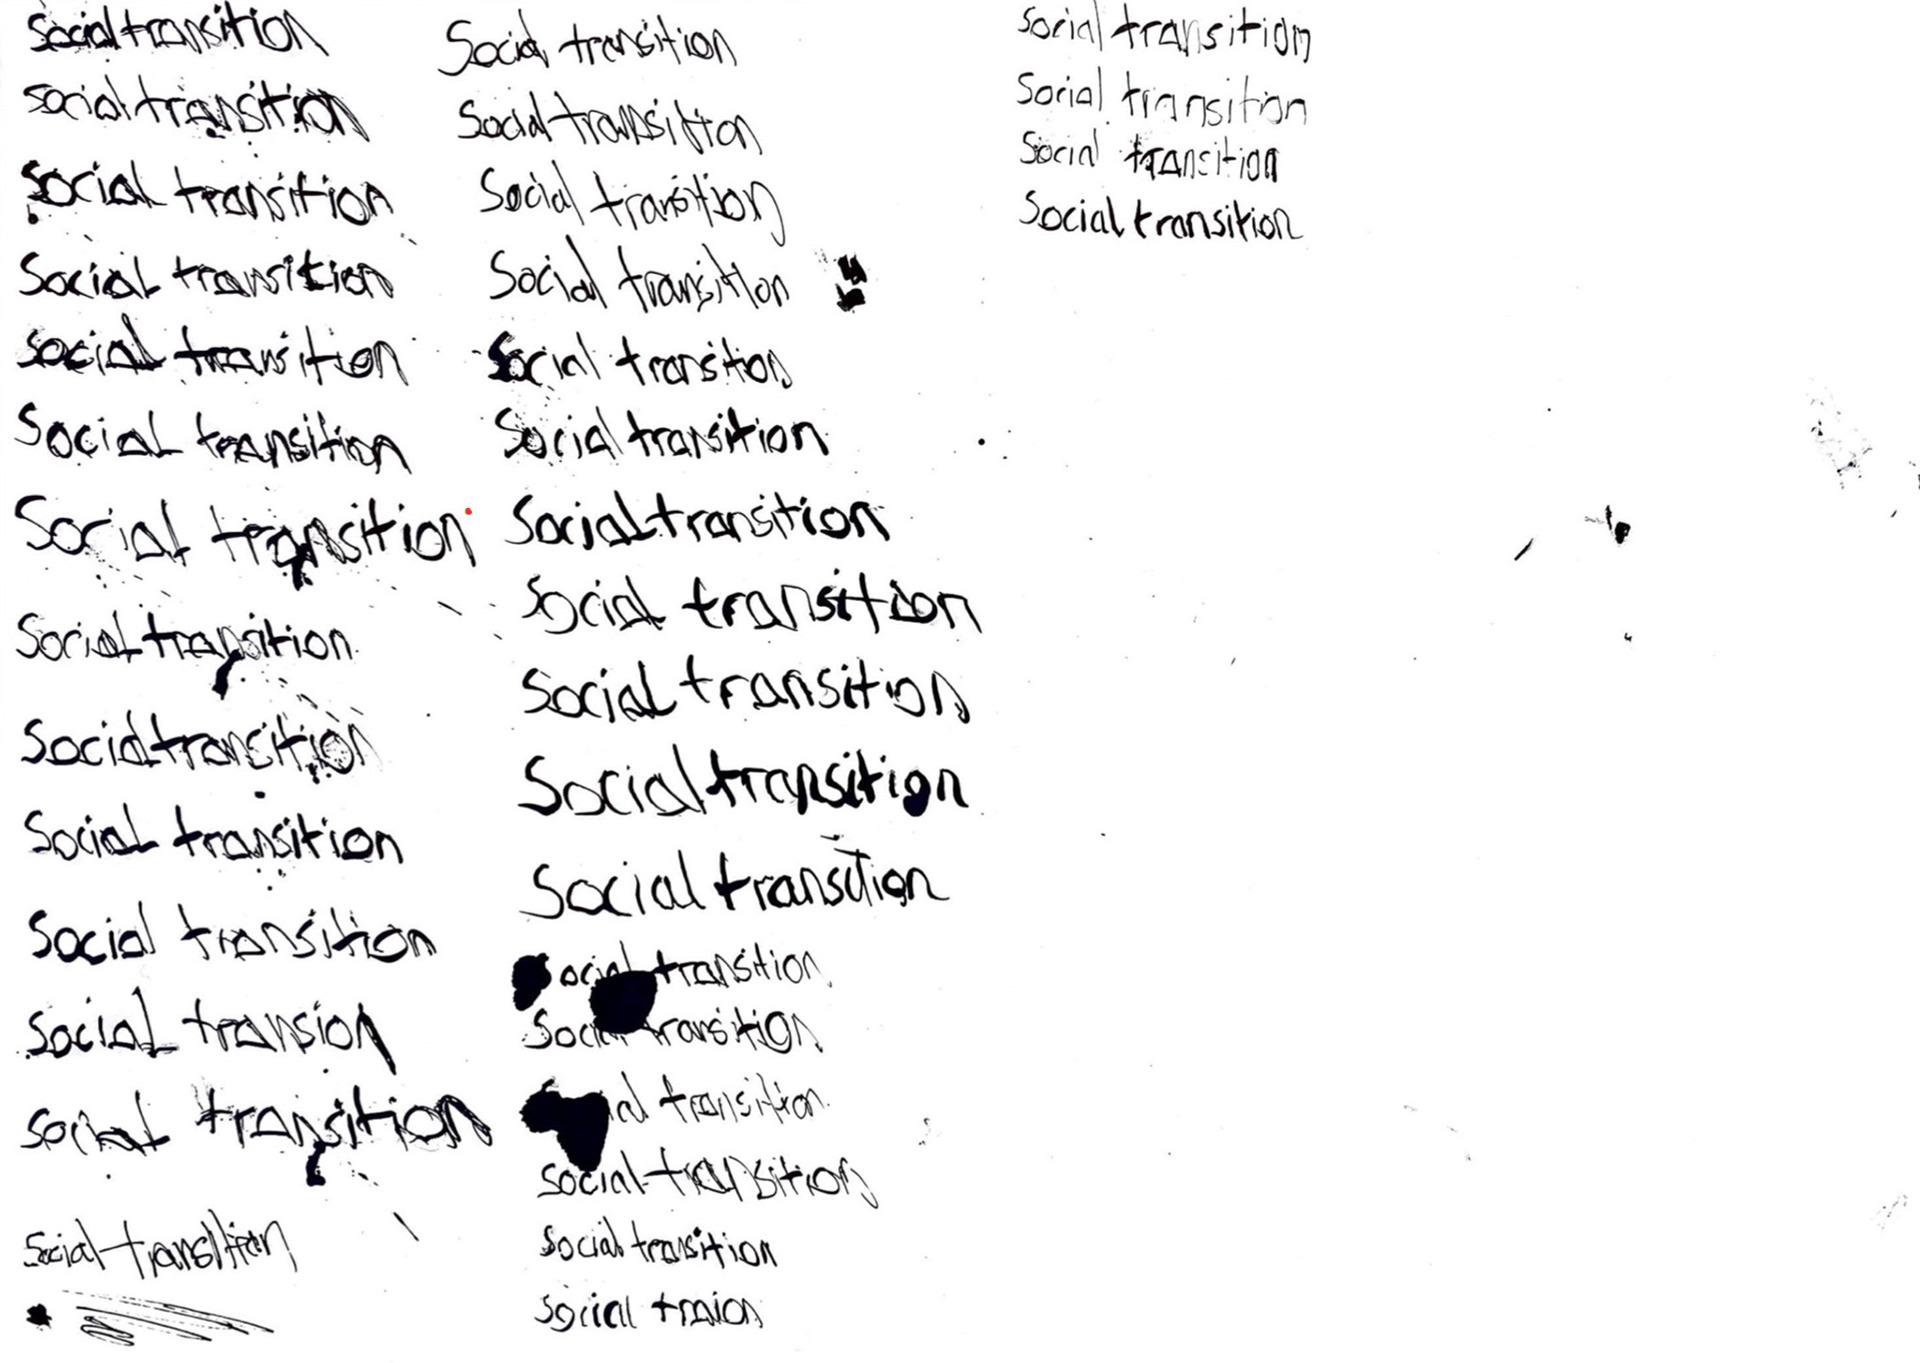 Social transition
Social transition
Social transition
Social transition
Social transition
Social transition
Social transition
Social transition
Social transition
Social transition
Social transition
Social transion
Social transition
Social transition
Social transition
Social transition
Social transition
Social transition
Social transition
Social transition
Social transition
Social transition
Social transition
Social transition
Social transition
ocial transition
Social transition
transition
Social transition
Social transition
Social traion
Social transition
Social transition
Social transition
Social transition